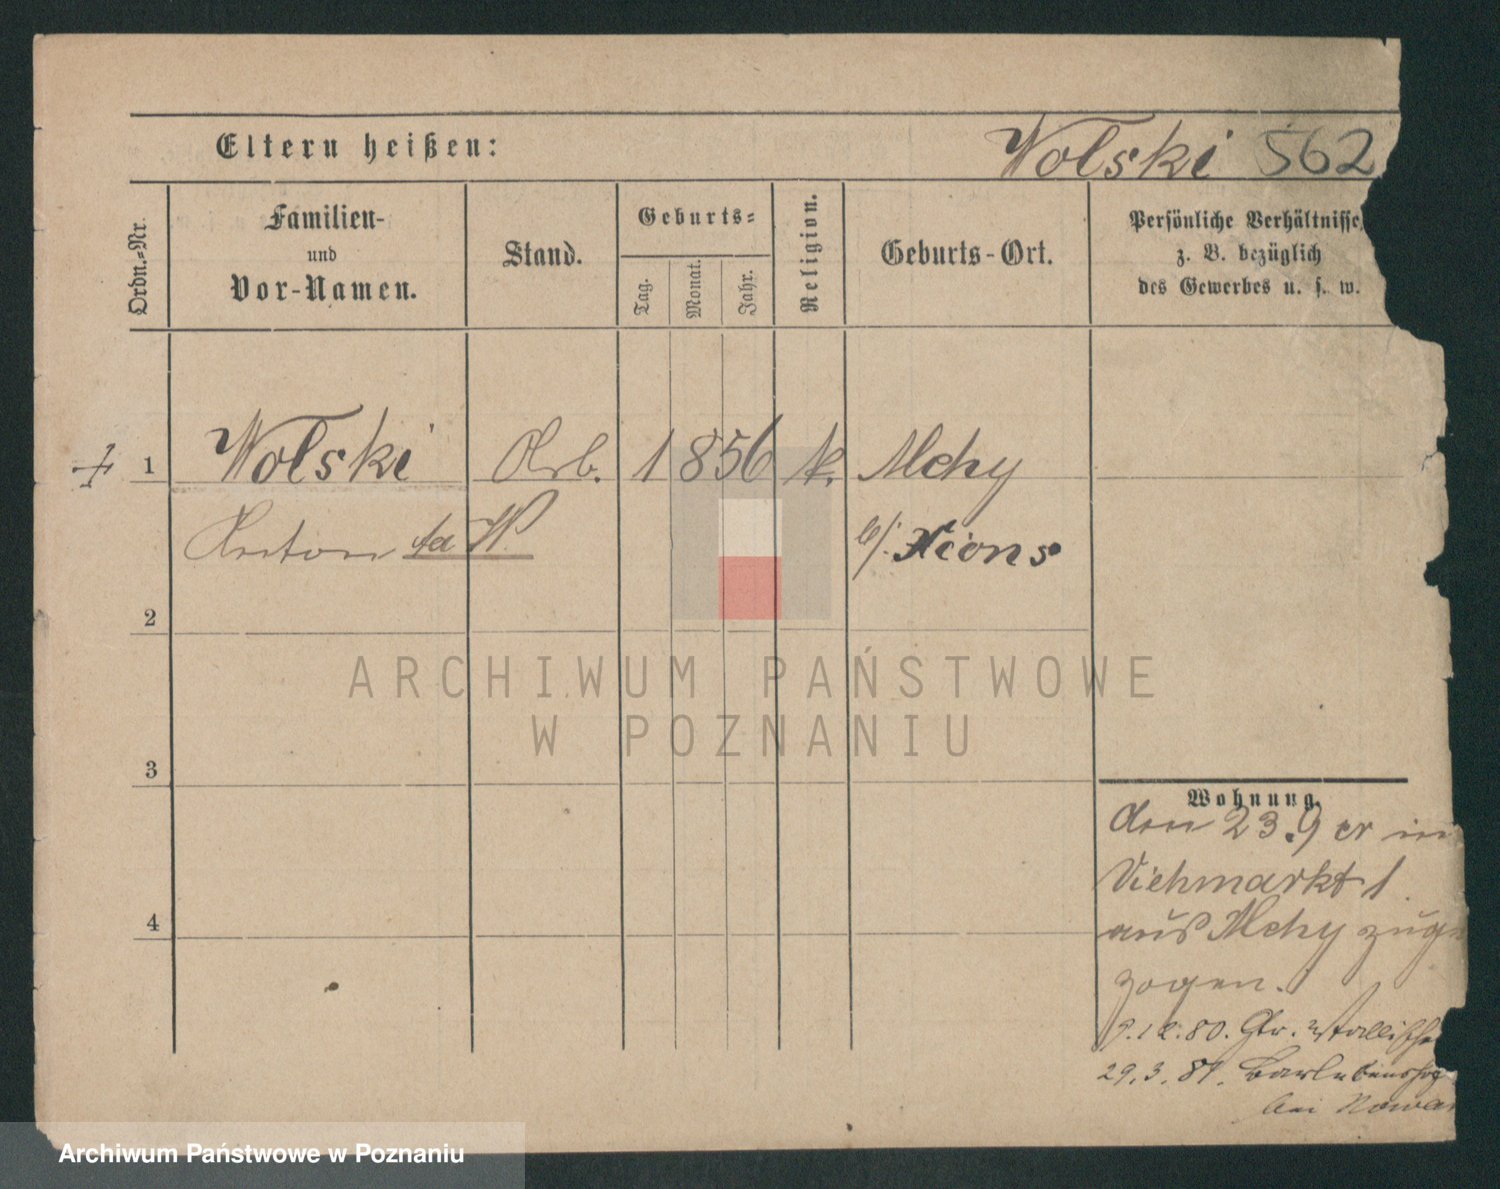 Eltern heißen:
Wolski 562
Ordn.-Nr.
Familien-
und
Vor-Namen.
Stand.
Geburts-
Tag.
Monat.
Jahr.
Religion.
Geburts-Ort.
Persönliche Verhältnisse,
z. B. bezüglich
des Gewerbes u. s. w.
1 Wolski Arb. 1856 k. Mchy
Anton b/. Xions
2
3
4
Wohnung.
den 23.9 cr in
Viehmarkt 1
aus Mchy zuge
zogen.
80. Gr.
29.3.81.
bei
ARCHIWUM PAŃSTWOWE
W POZNANIU
Archiwum Państwowe w Poznaniu